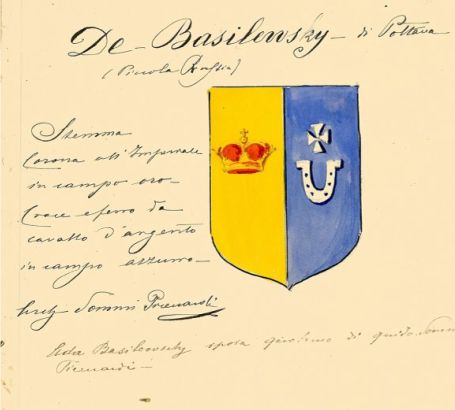 De - Basilewsky - di Poltava
(Piccola Russia)
Stemma
Corona all'Imperiale
in campo oro -
Croce e ferro da
cavallo d'argento
in campo azzurro -
Sommi Picenardi
Basilewsky sposa Girolamo di Guido Sommi
Picenardi -